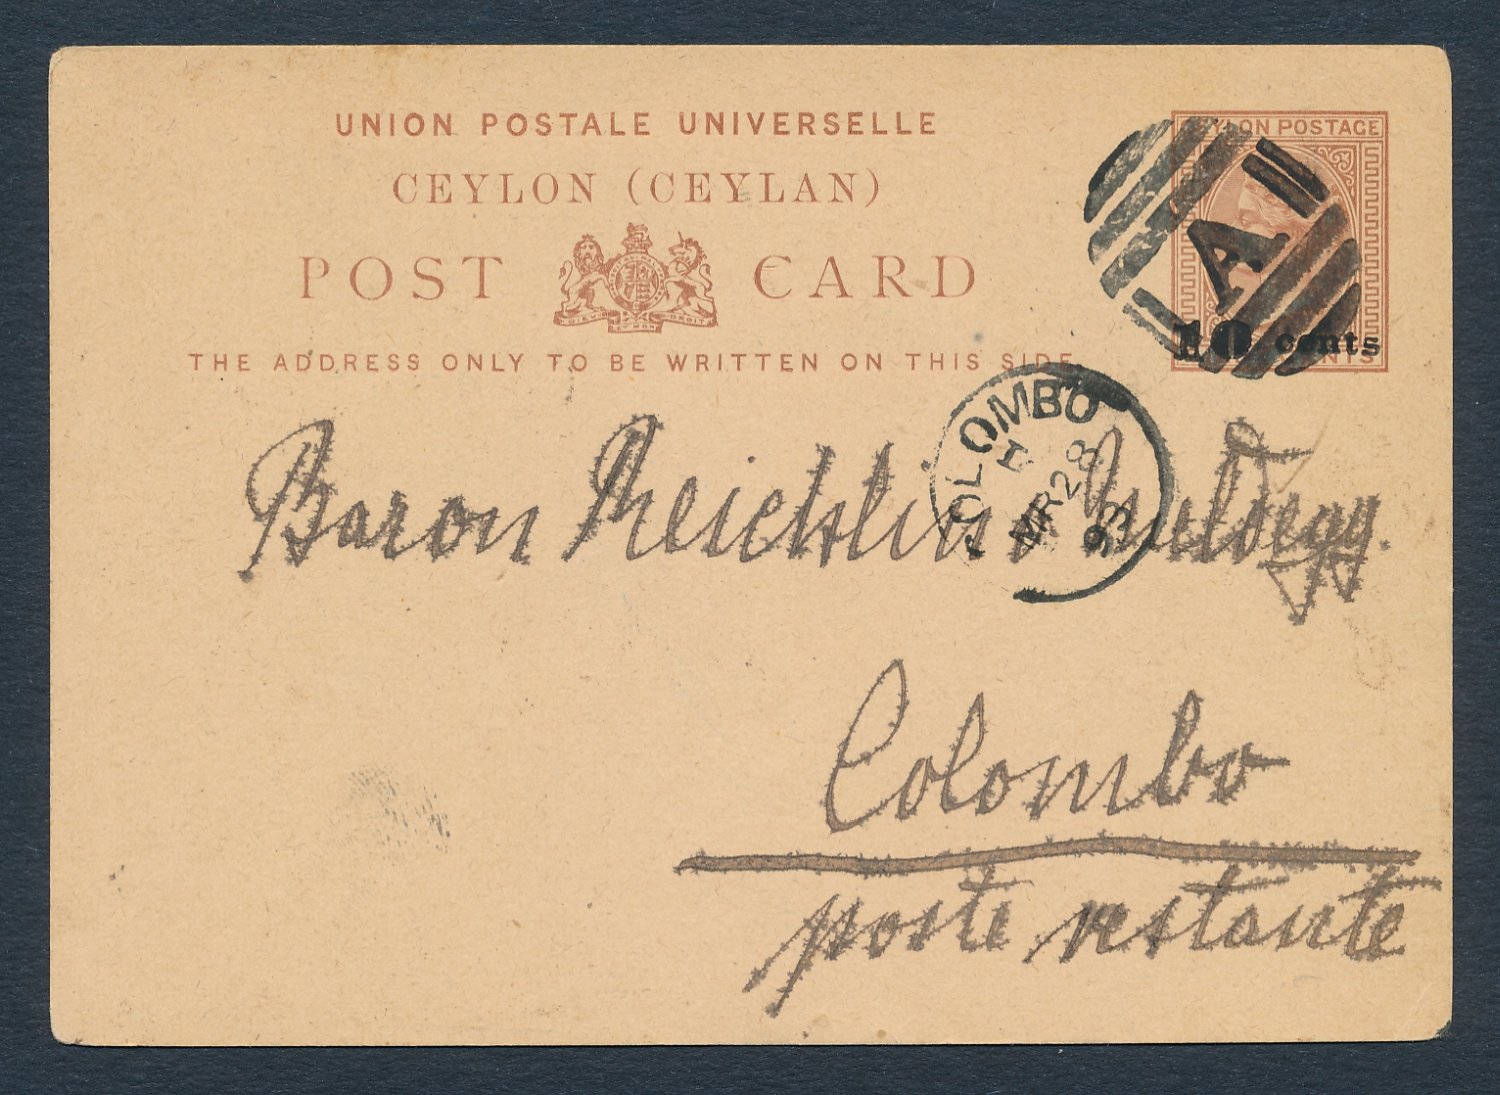 UNION POSTALE UNIVERSELLE
CEYLON (CEYLAN)
POST CARD
DIEU ET MON DROIT
THE ADDRESS ONLY TO BE WRITTEN ON THIS SIDE
CEYLON POSTAGE
A
10 cents
COLOMBO
H
MR 28
93
Baron Reichlin Meldegg.
Colombo
poste restante